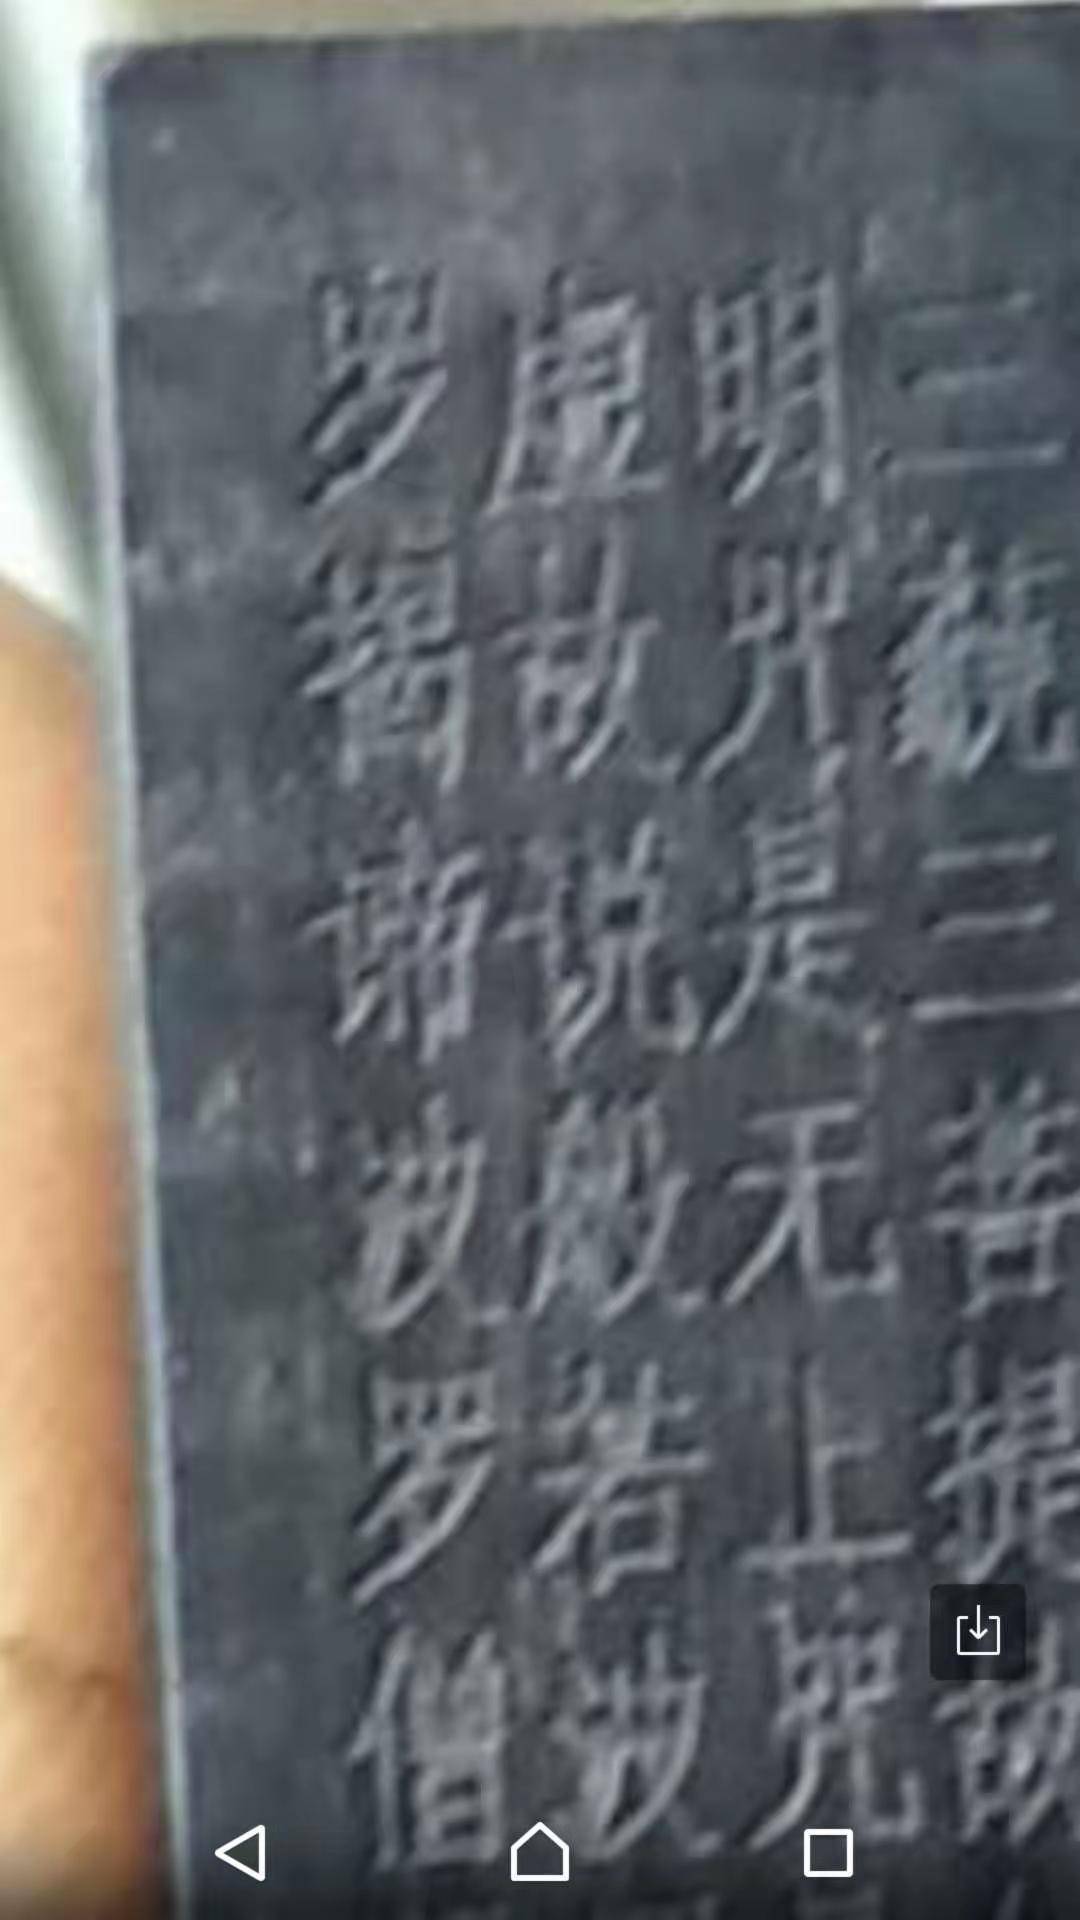 三藐三菩提故
明咒是无上咒
虚故说般若波
罗揭谛波罗僧